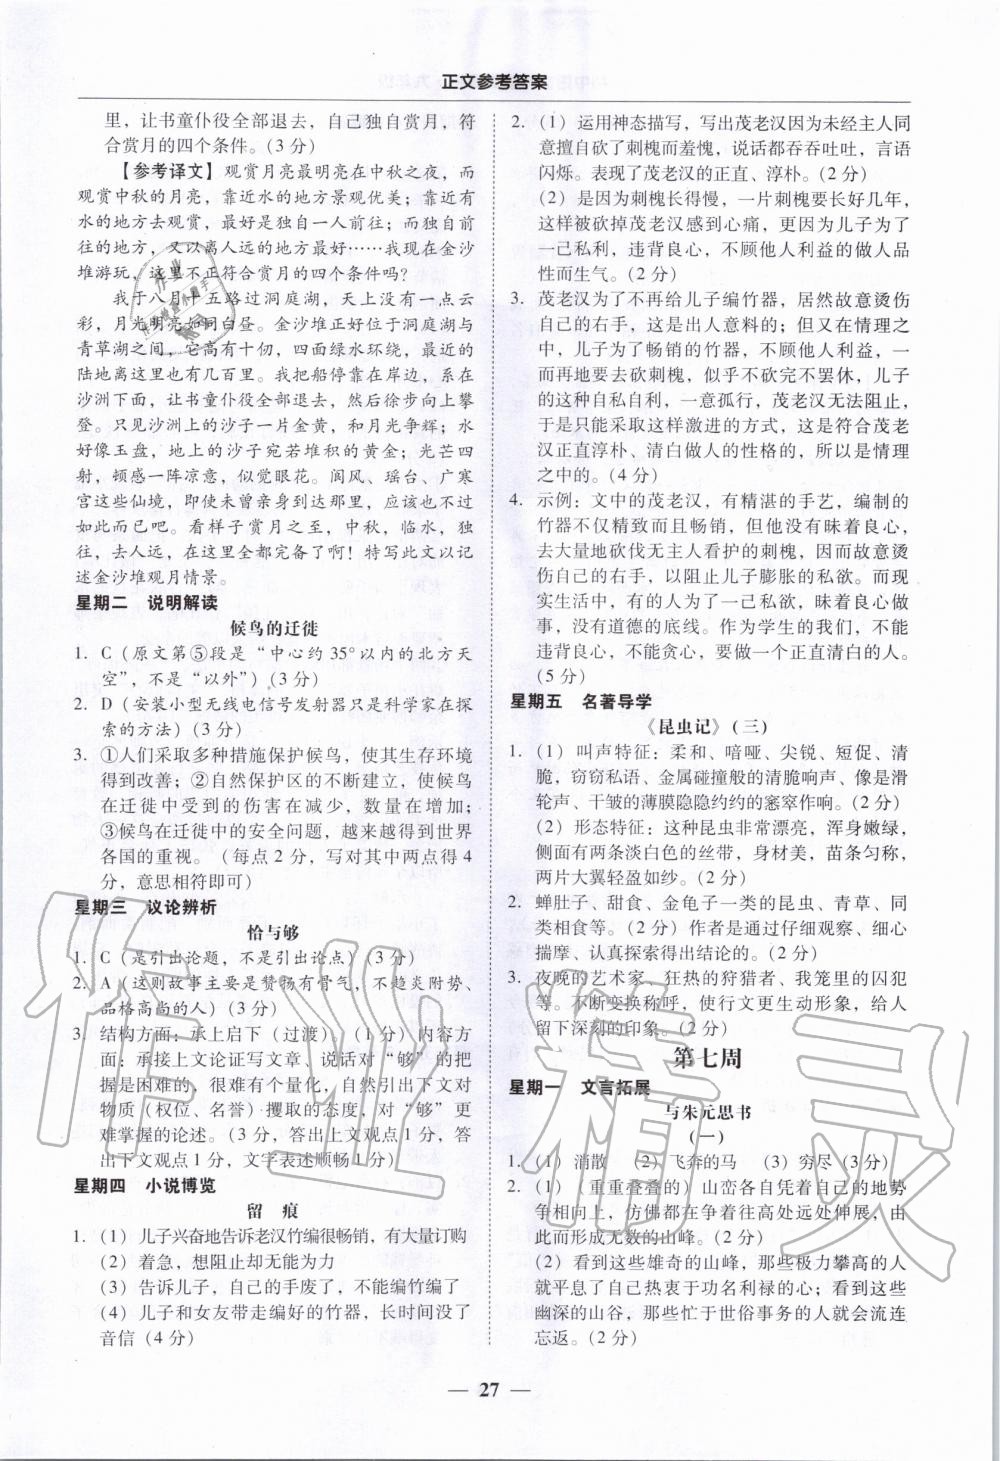 正文参考答案
里，让书童仆役全部退去，自己独自赏月，符
合赏月的四个条件。（3 分）
【参考译文】观赏月亮最明亮在中秋之夜，而
观赏中秋的月亮，靠近水的地方景观优美；靠近有
水的地方去观赏，最好是独自一人前往；而独自前
往的地方，又以离人远的地方最好……我现在金沙
堆游玩，这里不正符合赏月的四个条件吗？
我于八月十五路过洞庭湖，天上没有一点云
彩，月光明亮如同白昼。金沙堆正好位于洞庭湖与
青草湖之间，它高有十仞，四面绿水环绕，最近的
陆地离这里也有几百里。我把船停靠在岸边，系在
沙洲下面，让书童仆役全部退去，然后徐步向上攀
登。只见沙洲上的沙子一片金黄，和月光争辉；水
好像玉盘，地上的沙子宛若堆积的黄金；光芒四
射，顿感一阵凉意，似觉眼花。阆风、瑶台、广寒
宫这些仙境，即使未曾亲身到达那里，应该也不过
如此而已吧。看样子赏月之至，中秋，临水，独
往，去人远，在这里全都完备了啊！特写此文以记
述金沙堆观月情景。
星期二　说明解读
候鸟的迁徙
1. C（原文第⑤段是“中心约 35°以内的北方天
空”，不是“以外”）（3 分）
2. D（安装小型无线电信号发射器只是科学家在探
索的方法）（3 分）
3. ①人们采取多种措施保护候鸟，使其生存环境
得到改善；②自然保护区的不断建立，使候鸟
在迁徙中受到的伤害在减少，数量在增加；
③候鸟在迁徙中的安全问题，越来越得到世界
各国的重视。（每点 2 分，写对其中两点得 4
分，意思相符即可）
星期三　议论辨析
恰与够
1. C（是引出论题，不是引出论点）（3 分）
2. A（这则故事主要是赞赏有骨气，不趋炎附势、
品格高尚的人）（3 分）
3. 结构方面：承上启下（过渡）。（1 分）内容方
面：承接上文论证写文章、说话对“够”的把
握是困难的，很难有个量化，然后引出下文对
物质（权位、名誉）攫取的态度，对“够”更
难掌握的论述。（3 分，答出上文观点 1 分，答
出下文观点 1 分，文字表述顺畅 1 分）
星期四　小说博览
留　痕
1. （1）儿子兴奋地告诉老汉竹编很畅销，有大量订购
（2）着急，想阻止却无能为力
（3）告诉儿子，自己的手废了，不能编竹编了
（4）儿子和女友带走编好的竹器，长时间没了
音信（4 分）
2. （1）运用神态描写，写出茂老汉因为未经主人同
意擅自砍了刺槐的羞愧，说话都吞吞吐吐，言语
闪烁。表现了茂老汉的正直、淳朴。（2 分）
（2）是因为刺槐长得慢，一片刺槐要长好几年，
这样被砍掉茂老汉感到心痛，更因为儿子为了
一己私利，违背良心，不顾他人利益的做人品
性而生气。（2 分）
3. 茂老汉为了不再给儿子编竹器，居然故意烫伤
自己的右手，这是出人意料的；但又在情理之
中，儿子为了畅销的竹器，不顾他人利益，一
而再地要去砍刺槐，似乎不砍完不罢休，儿子
的这种自私自利，一意孤行，茂老汉无法阻止，
于是只能采取这样激进的方式，这是符合茂老
汉正直淳朴、清白做人的性格的，所以是情理
之中的。（4 分）
4. 示例：文中的茂老汉，有精湛的手艺，编制的
竹器不仅精致而且畅销，但他没有昧着良心，
去大量地砍伐无主人看护的刺槐，因而故意烫
伤右手，以阻止儿子膨胀的私欲。而现
实生活中，有的人为了一己私欲，昧着良心做
事，没有道德的底线。作为学生的我们，不能
违背良心，不能贪心，要做一个正直清白的人。
（5 分）
星期五　名著导学
《昆虫记》（三）
1. （1）叫声特征：柔和、喑哑、尖锐、短促、清
脆，窃窃私语、金属碰撞般的清脆响声、像是滑
轮声、干皱的薄膜隐隐约约的窸窣作响。（2 分）
（2）形态特征：这种昆虫非常漂亮，浑身嫩绿，
侧面有两条淡白色的丝带，身材美，苗条匀称，
两片大翼轻盈如纱。（2 分）
2. 蝉肚子、甜食、金龟子一类的昆虫、青草、同
类相食等。（2 分）作者是通过仔细观察、细心
揣摩、认真探索得出结论的。（2 分）
3. 夜晚的艺术家、狂热的狩猎者、我笼里的囚犯
等。不断变换称呼，使行文更生动形象，给人
留下深刻的印象。（2 分）
第七周
星期一　文言拓展
与朱元思书
（一）
1. （1）消散　（2）飞奔的马　（3）穷尽（3 分）
2. （1）（重重叠叠的）山峦各自凭着自己的地势
争相向上，仿佛都在争着往高处远处伸展，由
此而形成无数的山峰。（2 分）
（2）看到这些雄奇的山峰，那些极力攀高的人
就平息了自己热衷于功名利禄的心；看到这些
幽深的山谷，那些忙于世俗事务的人就会流连
忘返。（2 分）
— 27 —
作业精灵